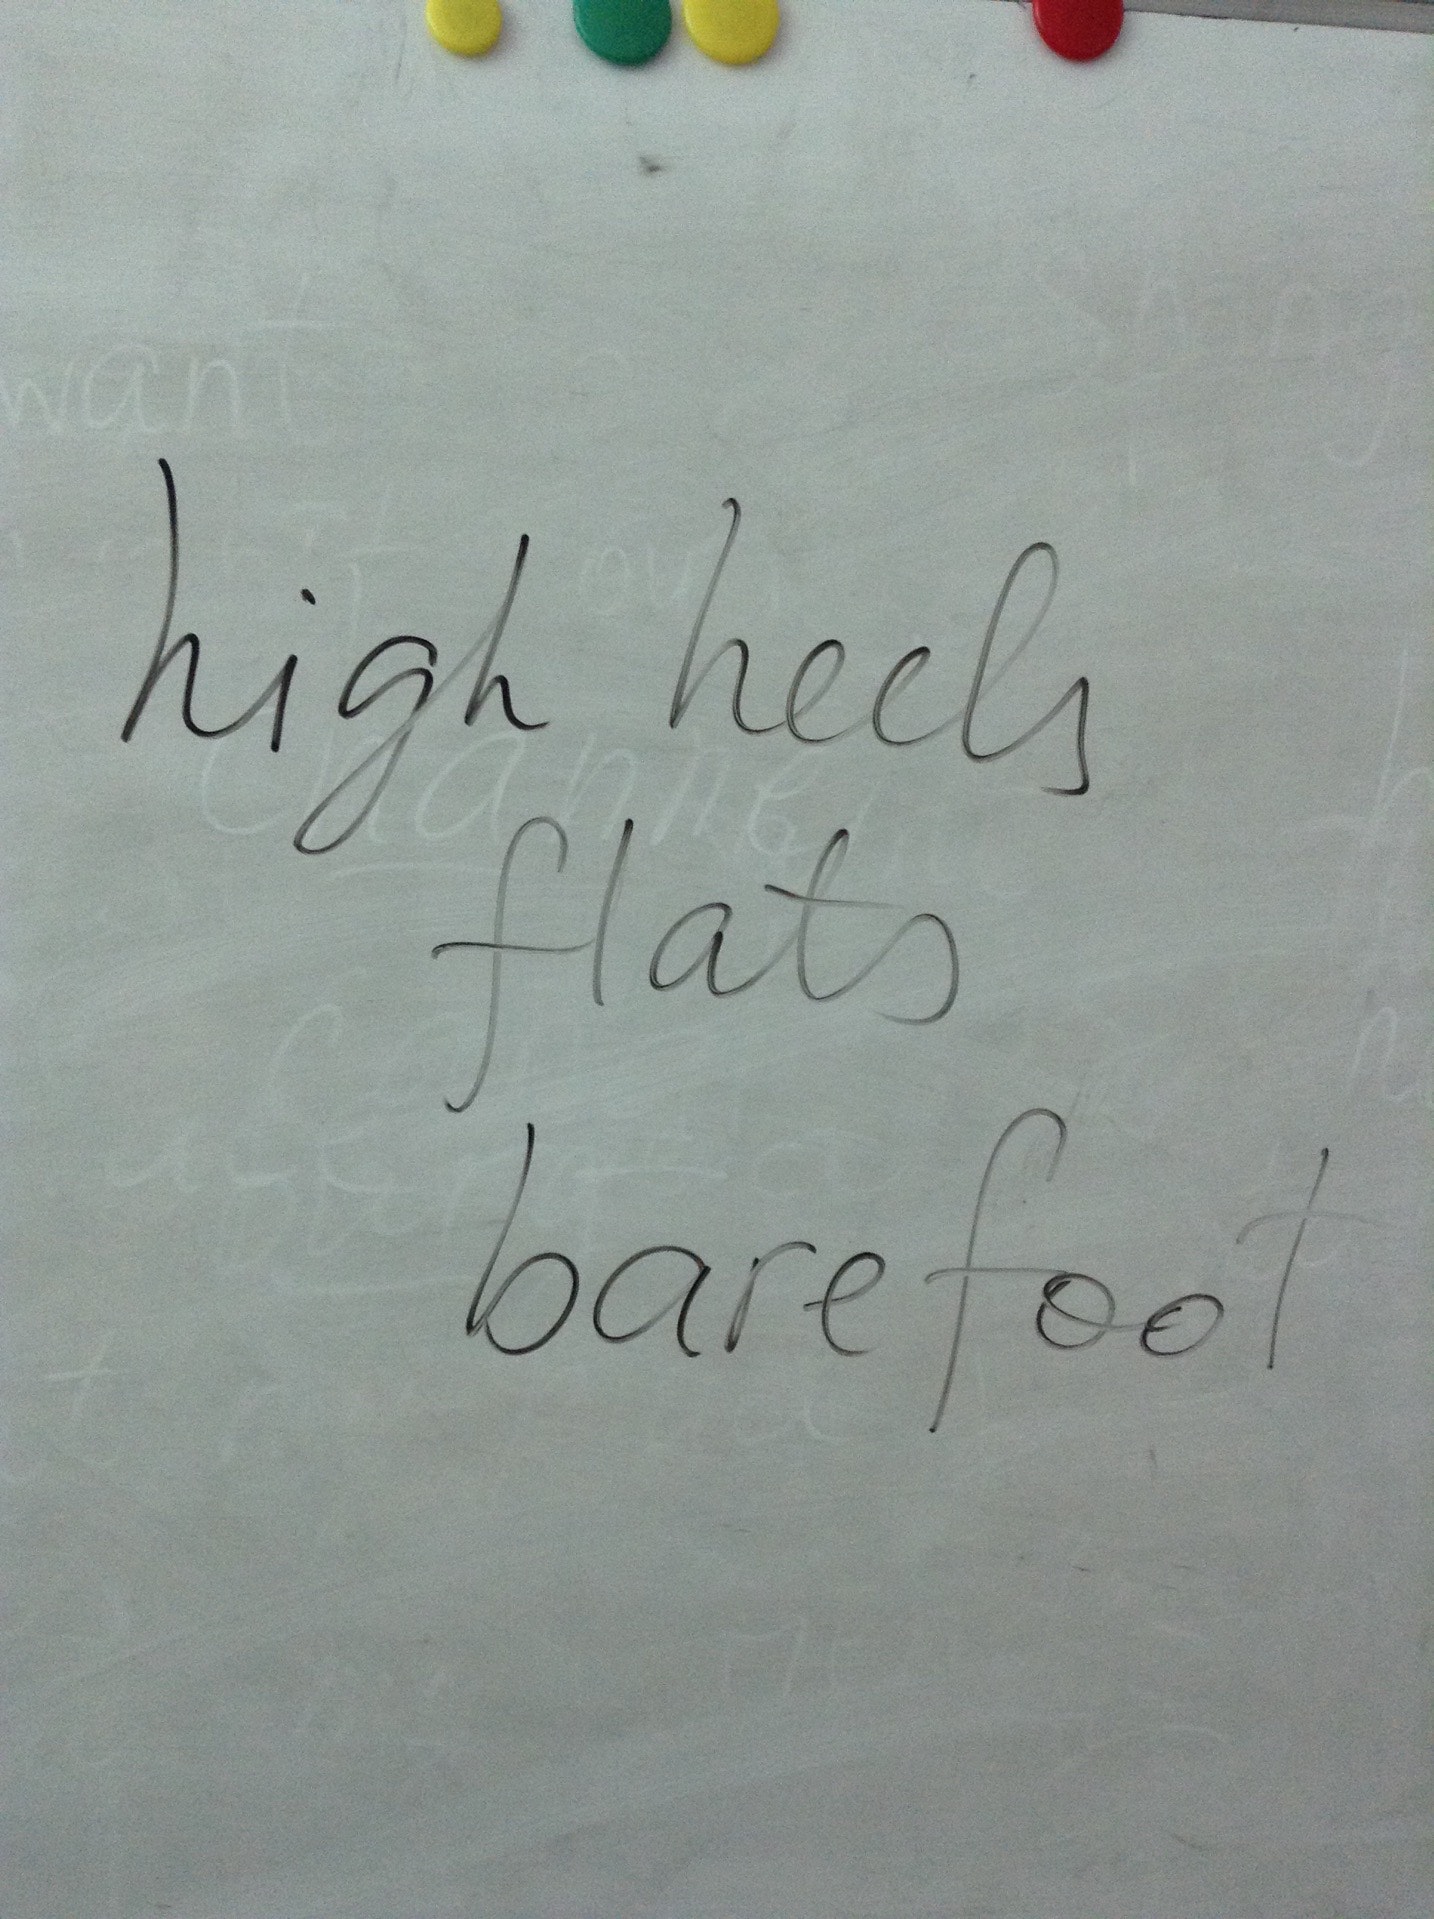 want
high heels
flats
barefoot